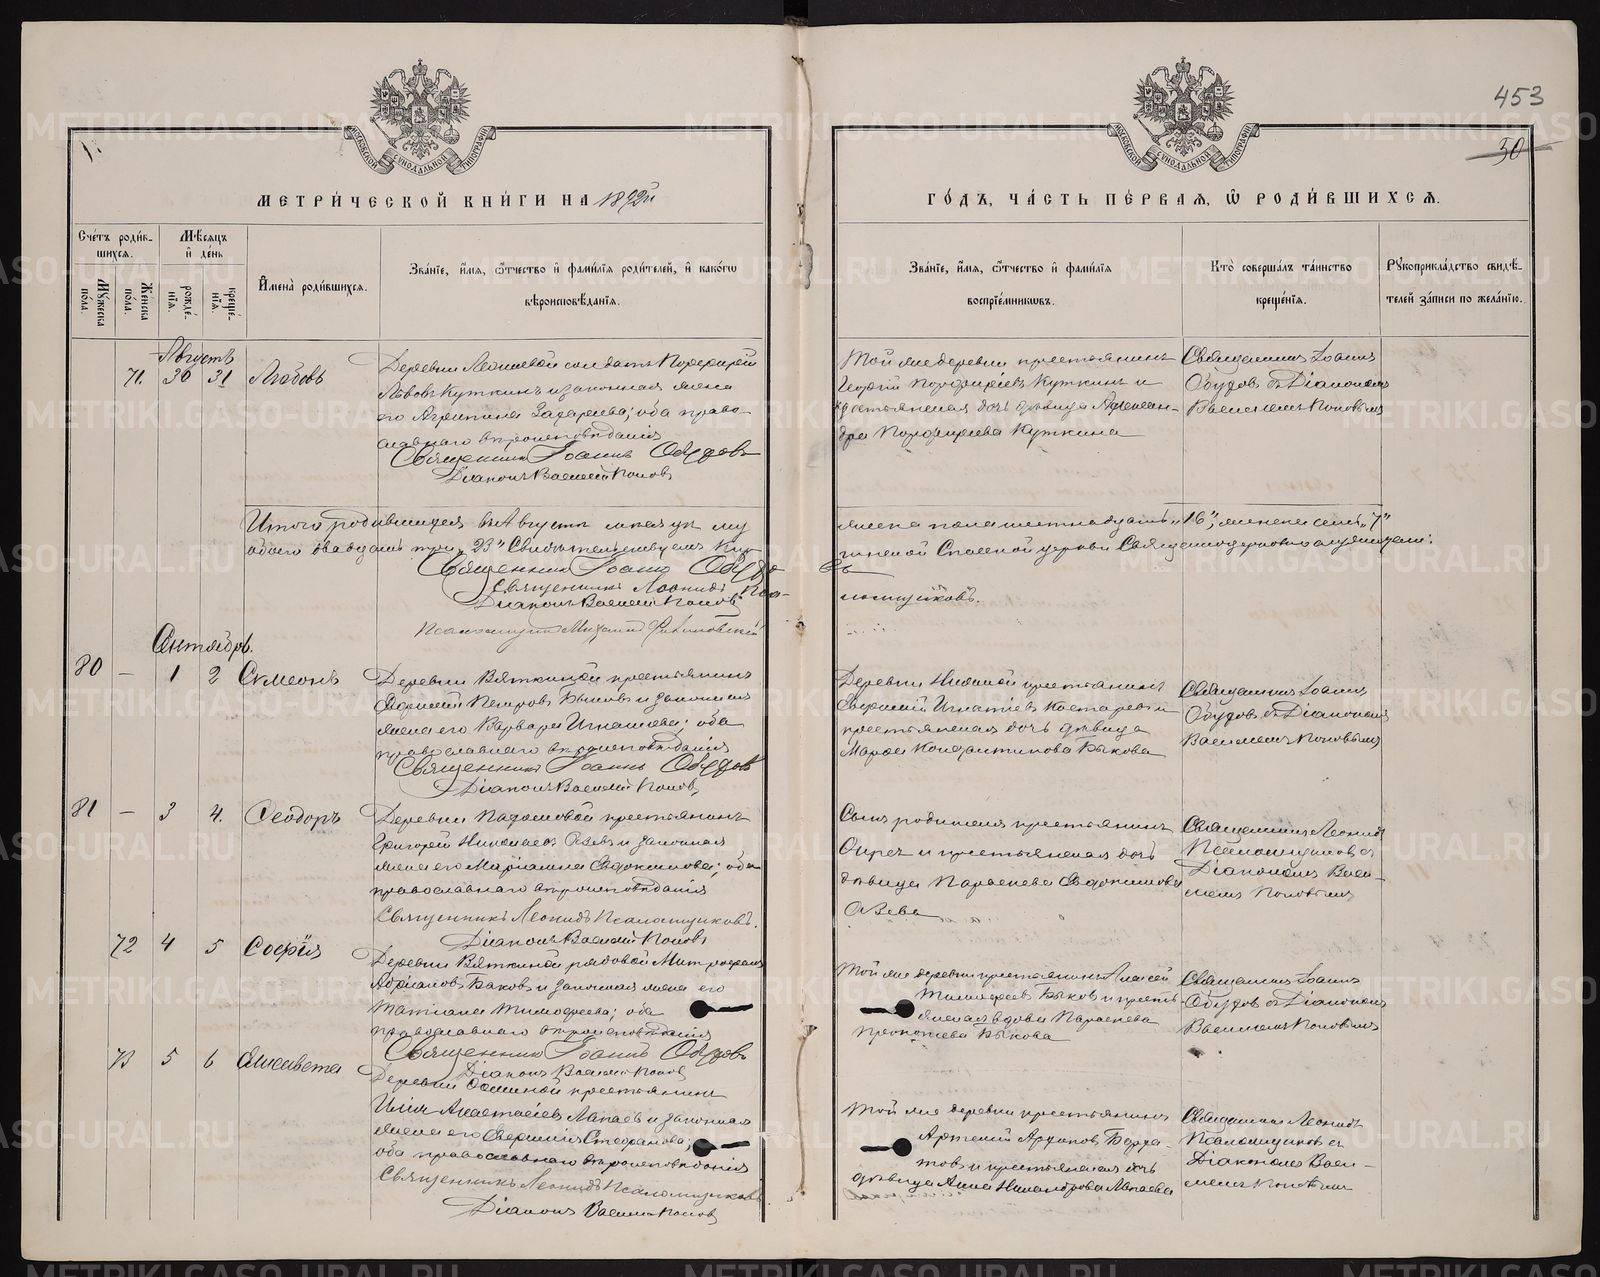 453
50
1.
МЕТРИ́ЧЕСКОЙ КНИ́ГИ НА 1892й
ГО́ДЪ, ЧА́СТЬ ПЕ́РВАЯ, Ѡ РОДИ́ВШИХСѦ.
Сче́тъ роди́вшихсѧ.
Мꙋ́жеска по́ла.
Же́нска по́ла.
Мѣ́сѧцъ и҆ де́нь
рожде́нїѧ.
креще́нїѧ.
И҆мена̀ роди́вшихсѧ.
Зва́нїе, и҆́мѧ, ѻ҆́тчество и҆ фами́лїѧ роди́телей, и҆ како́гѡ
вѣроисповѣ́данїѧ.
Зва́нїе, и҆́мѧ, ѻ҆́тчество и҆ фами́лїѧ
воспрїе́мникѡвъ.
Кто̀ соверша́лъ та́инство
креще́нїѧ.
Рꙋкоприкла́дство свидѣ́-
телей за́писи по жела́нїю.
Августъ
71. 30 31 Любовь
Деревни солдатъ Порфирій
Львовъ Куткинъ и законная жена
его Агрипина Захарьева; оба право-
славнаго вѣроисповѣданія
Священникъ Іоаннъ Обудовъ
Діаконъ Василій Поповъ
Той же деревни крестьянинъ
Георгій Порфиріевъ Куткинъ и
крестьянская дочь дѣвица Алексан-
дра Порфирьева Куткина
Священникъ Іоаннъ
Обудовъ съ Діакономъ
Василіемъ Поповымъ
Итого родившихся въ Августѣ мѣсяцѣ му
жеска пола шестнадцать „16", женска семь „7"
обоего двадцать три „23" Свидѣтельствуемъ
Спасской церкви Священноцерковнослужители:
Священникъ Іоаннъ Обудовъ
Священникъ Леонидъ Псаломщиковъ.
Діаконъ Василій Поповъ
Псаломщикъ Михаилъ
Сентябрь.
80 — 1 2 Сѵмеонъ
Деревни Вяткиной крестьянинъ
Петровъ Быковъ и законная
жена его Варвара Игнатьева; оба
православнаго вѣроисповѣданія
Священникъ Іоаннъ Обудовъ
Діаконъ Василій Поповъ
Деревни крестьянинъ
Игнатіевъ Костаревъ и
крестьянская дочь дѣвица
Марѳа Константинова Быкова
Священникъ Іоаннъ
Обудовъ съ Діакономъ
Василіемъ Поповымъ
81 — 3 4. Ѳеодоръ
Деревни крестьянинъ
Григорій Николаевъ и законная
жена его Маріамна Евдокимова; оба
православнаго вѣроисповѣданія
Священникъ Леонидъ Псаломщиковъ.
Діаконъ Василій Поповъ
Сынъ родителя крестьянинъ
и крестьянская дочь
дѣвица Параскева Евдокимова
Священникъ Леонидъ
Псаломщиковъ съ
Діакономъ Васи-
ліемъ Поповымъ
72 4 5 Софія
Деревни Вяткиной рядовой Митрофанъ
Адріановъ Быковъ и законная жена его
Татіана Тимофеева; оба
православнаго вѣроисповѣданія
Священникъ Іоаннъ Обудовъ
Діаконъ Василій Поповъ
Той же деревни крестьянинъ Алексѣй
Тимофеевъ Быковъ и кресть-
янская вдова Параскева
Прокопьева Быкова
Священникъ Іоаннъ
Обудовъ съ Діакономъ
Василіемъ Поповымъ
73 5 6 Елисавета
Деревни крестьянинъ
Илія Анастасіевъ и законная
жена его Стефанова;
оба православнаго вѣроисповѣданія
Священникъ Леонидъ Псаломщиковъ
Діаконъ Василій Поповъ
Той же деревни крестьянинъ
Артемій
и крестьянская дочь
дѣвица Анна Никанорова
Священникъ Леонидъ
Псаломщиковъ съ
Діакономъ Васи-
ліемъ Поповымъ
METRIKI.GASO-URAL.RU